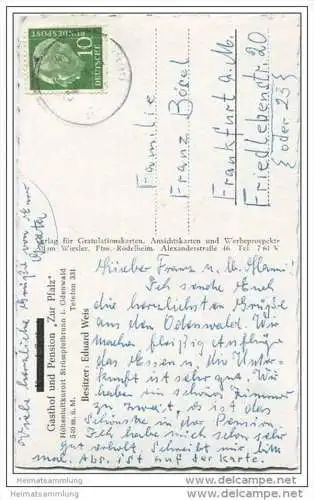 DEUTSCHE
BUNDESPOST
10
Familie
Franz Bösel
Frankfurt a. M.
Friedlebenstr. 20
(oder 23)
Verlag für Gratulationskarten, Ansichtskarten und Werbeprospekte
Wiesler, Ffm.-Rödelheim, Alexanderstraße 46, Tel. 7 61
Gasthof und Pension „Zur Pfalz"
Höhenluftkurort Strümpfelbrunn i. Odenwald
540 m ü. M. Telefon 331
Besitzer: Eduard Weis
Lieber Franz u. lb. Hanni!
Ich sende Euch
die herzlichsten Grüße
aus dem Odenwald. Wir
machen fleißig Ausflüge
das Essen u. die Unter-
kunft ist sehr gut. Wir
haben ein schönes Zimmer
zu zweit, es ist das
Schönste in der Pension
Ich habe mich sehr sehr
gut erholt. Schreibt mir bitte
mal. Abs. ist auf der Karte.
Viele herzliche Grüße von Eurer
Heimatsammlung.com
Heimatsammlung.com